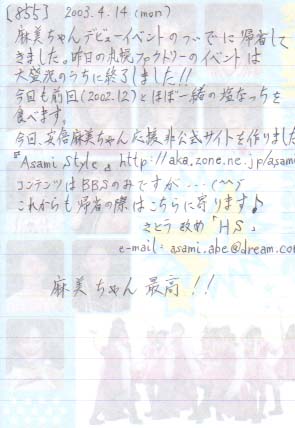 [855] 2003.4.14 (mon)
麻美ちゃんデビューイベントのついでに帰省して
きました。昨日の札幌ファクトリーのイベントは
大盛況のうちに終了しました!!
今回も前回(2002.12)とほぼ一緒の塩なっちを
食べます。
今回、安倍麻美ちゃん応援非公式サイトを作りました
『Asami Style』 http://aka.zone.ne.jp/asami
コンテンツはBBSのみですが・・・(^^;)
これからも帰省の際はこちらに寄ります♪
さとう改め「HS」
e-mail: asami.abe@dream.com
麻美ちゃん 最高!!